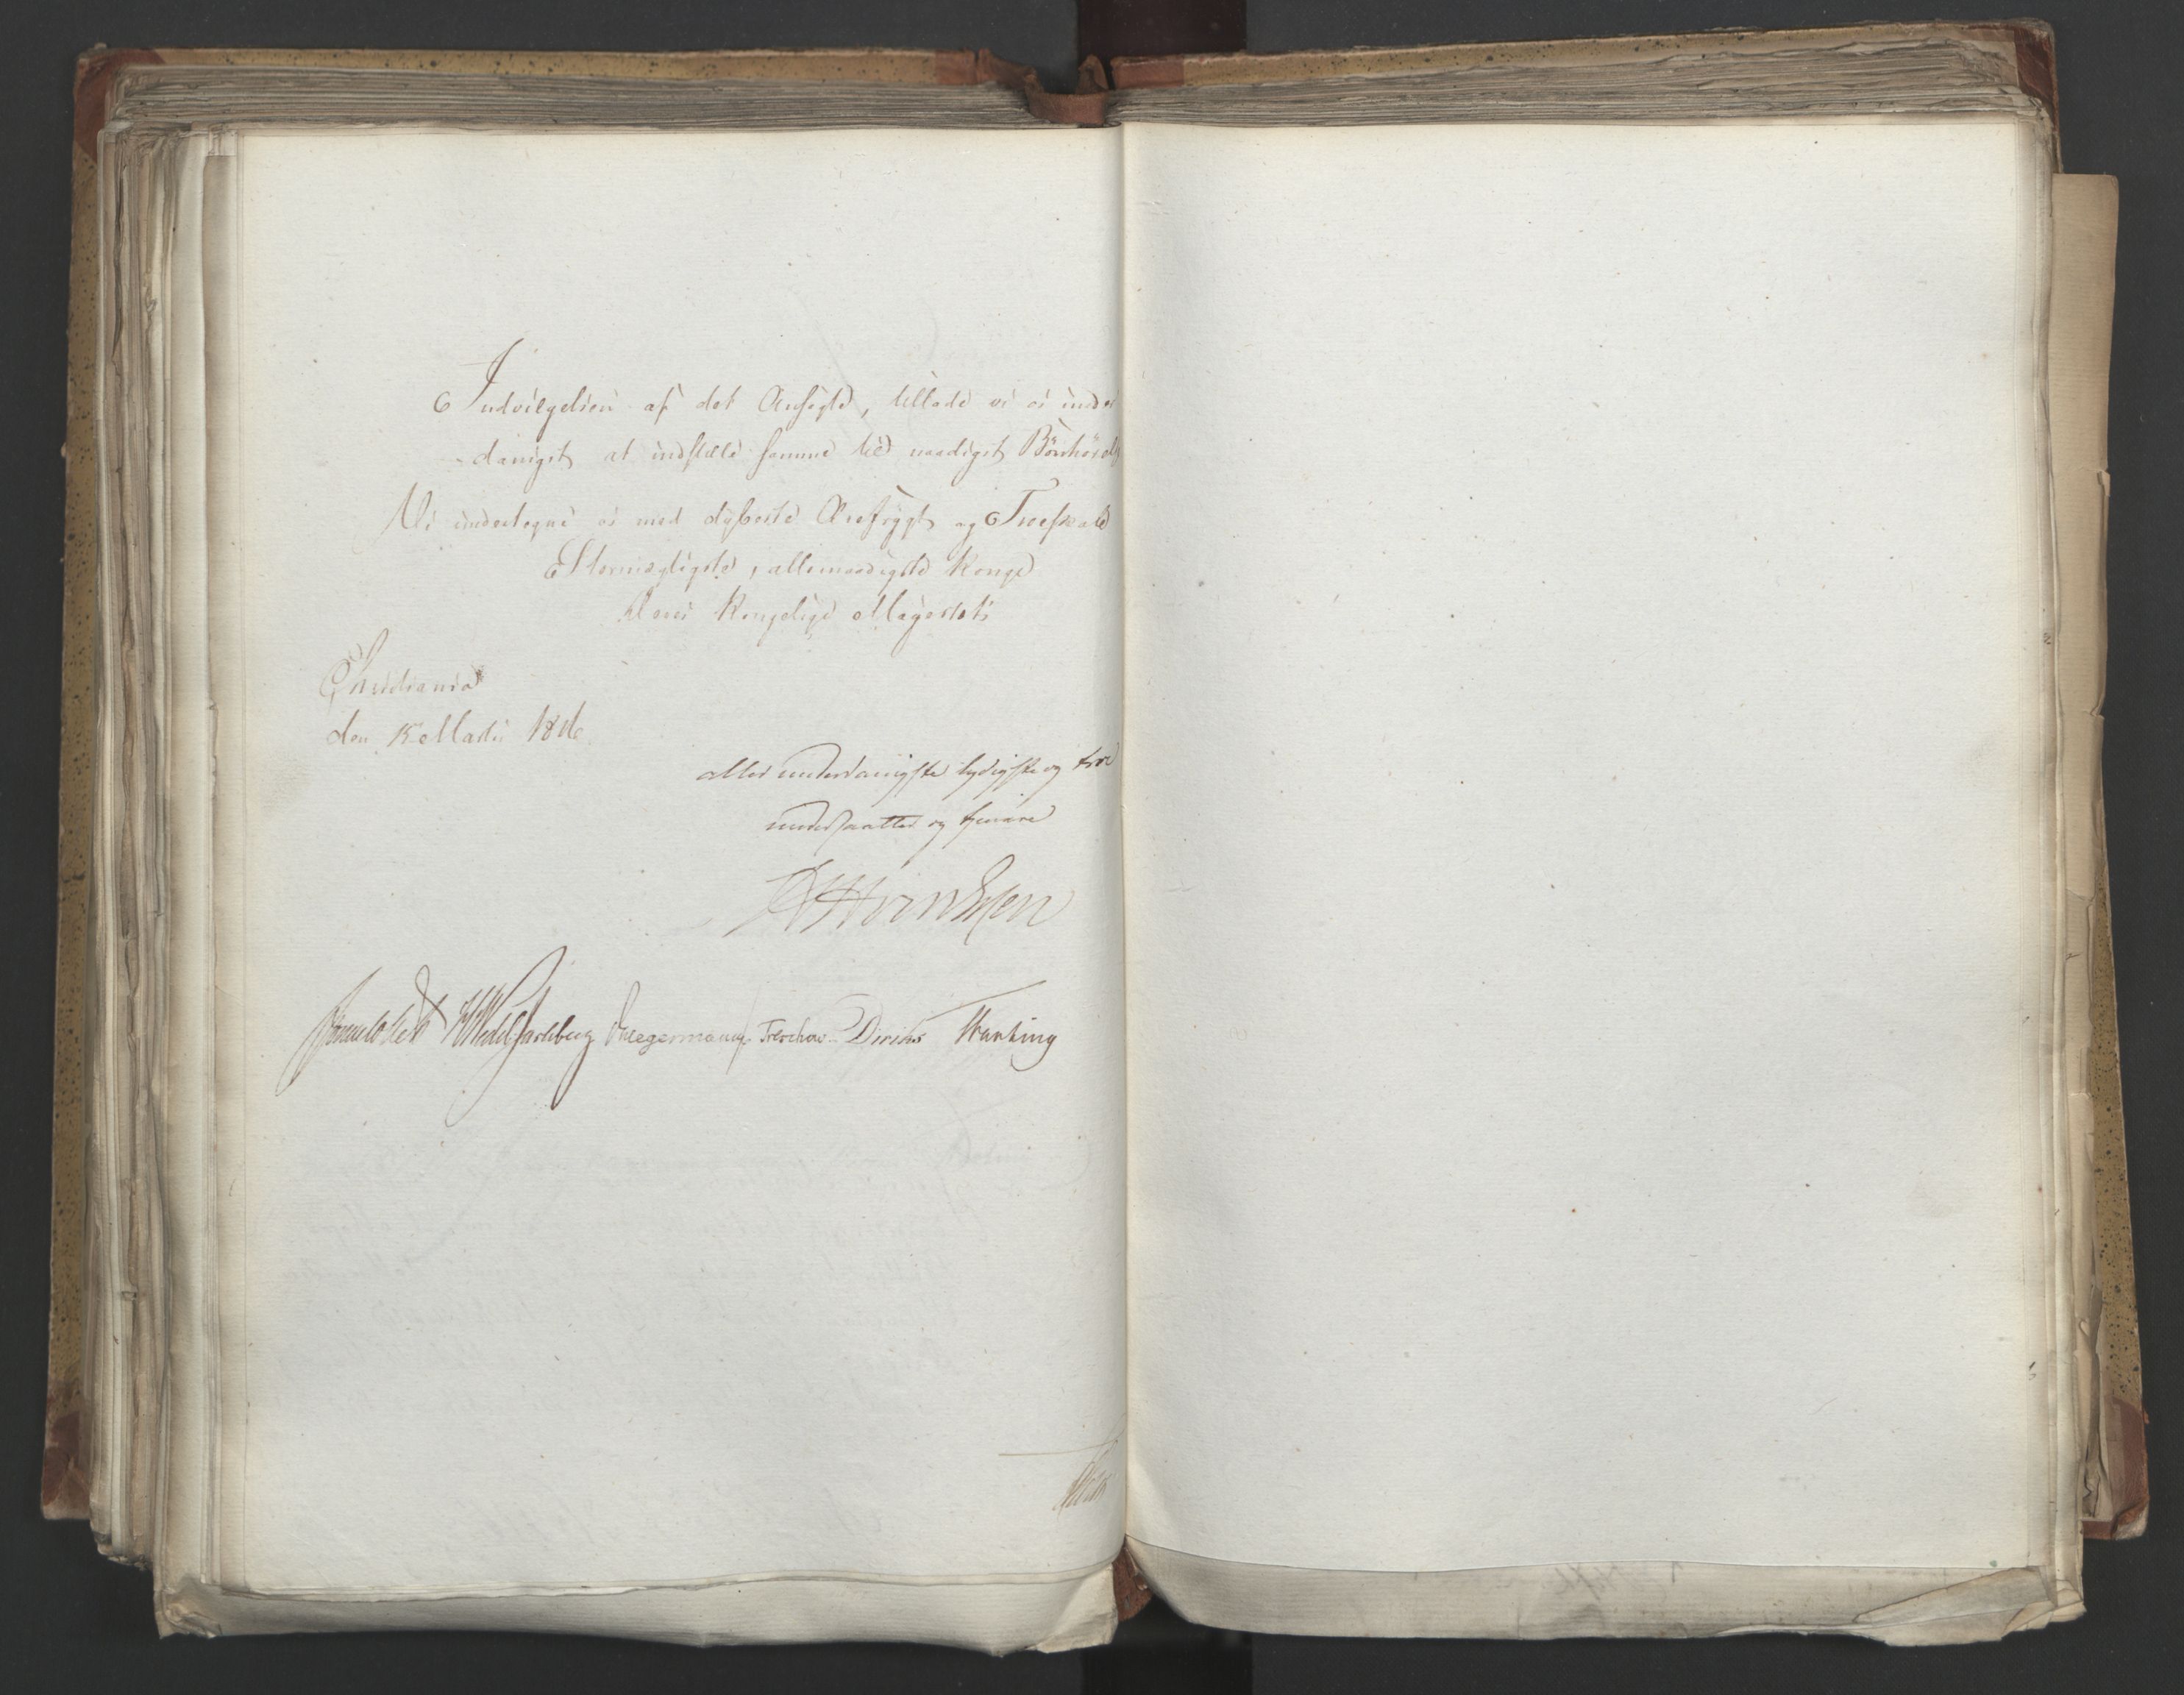 Indvilgelsen af det Ansøgte, tillade vi os under
danigst at indstille samme til naadigst Bönhörels
Vi undertegne os med dybeste Ærefrygt og Troeskab
Stormægtigste, allernaadigste Konge
Deres Kongelige Majestæts
Christiania
den 15 Martii 1816
aller underdanigste lydigste og troe
undersaatter og tjenere
Sommerhielm HWedel Jarlsberg Hegermann Treschow Diriks